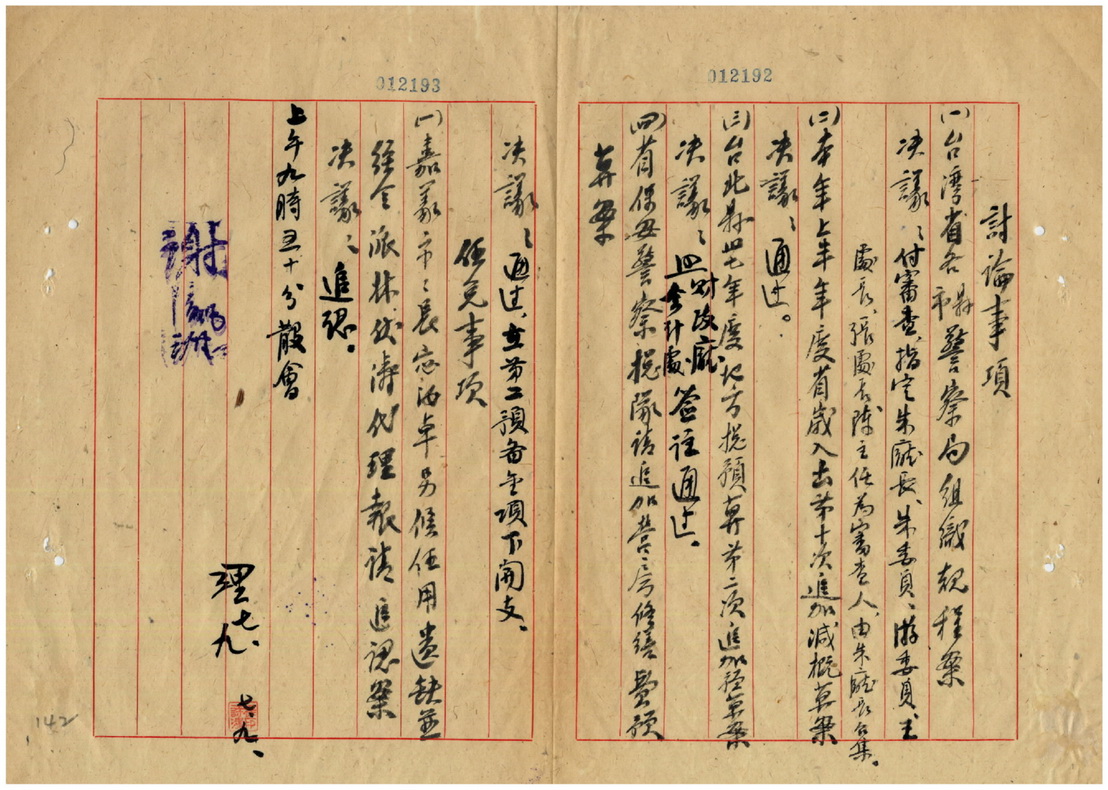 012192
討論事項
(一)台灣省各縣市警察局組織規程案
決議:付審查,指定朱廳長、朱委員、游委員、王
處長、張處長、陳主任為審查人,由朱廳長召集。
(二)本年上半年年度省歲入出第十次追加減概算案
決議:通过。
(三)台北縣四七年度地方總預算第二次追加預算案
決議:照財政廳會計處簽註通过。
(四)省保安警察總隊請追加營房修繕費預
算案
012193
決議:通过,在第二預备金項下開支、
任免事項
(一)嘉義市市長宓汝卓另候任用遺缺並
經令派林 代理報請追認案
決議:追認。
上午九時五十分散會
謝
理
七、九、
七、九、
142